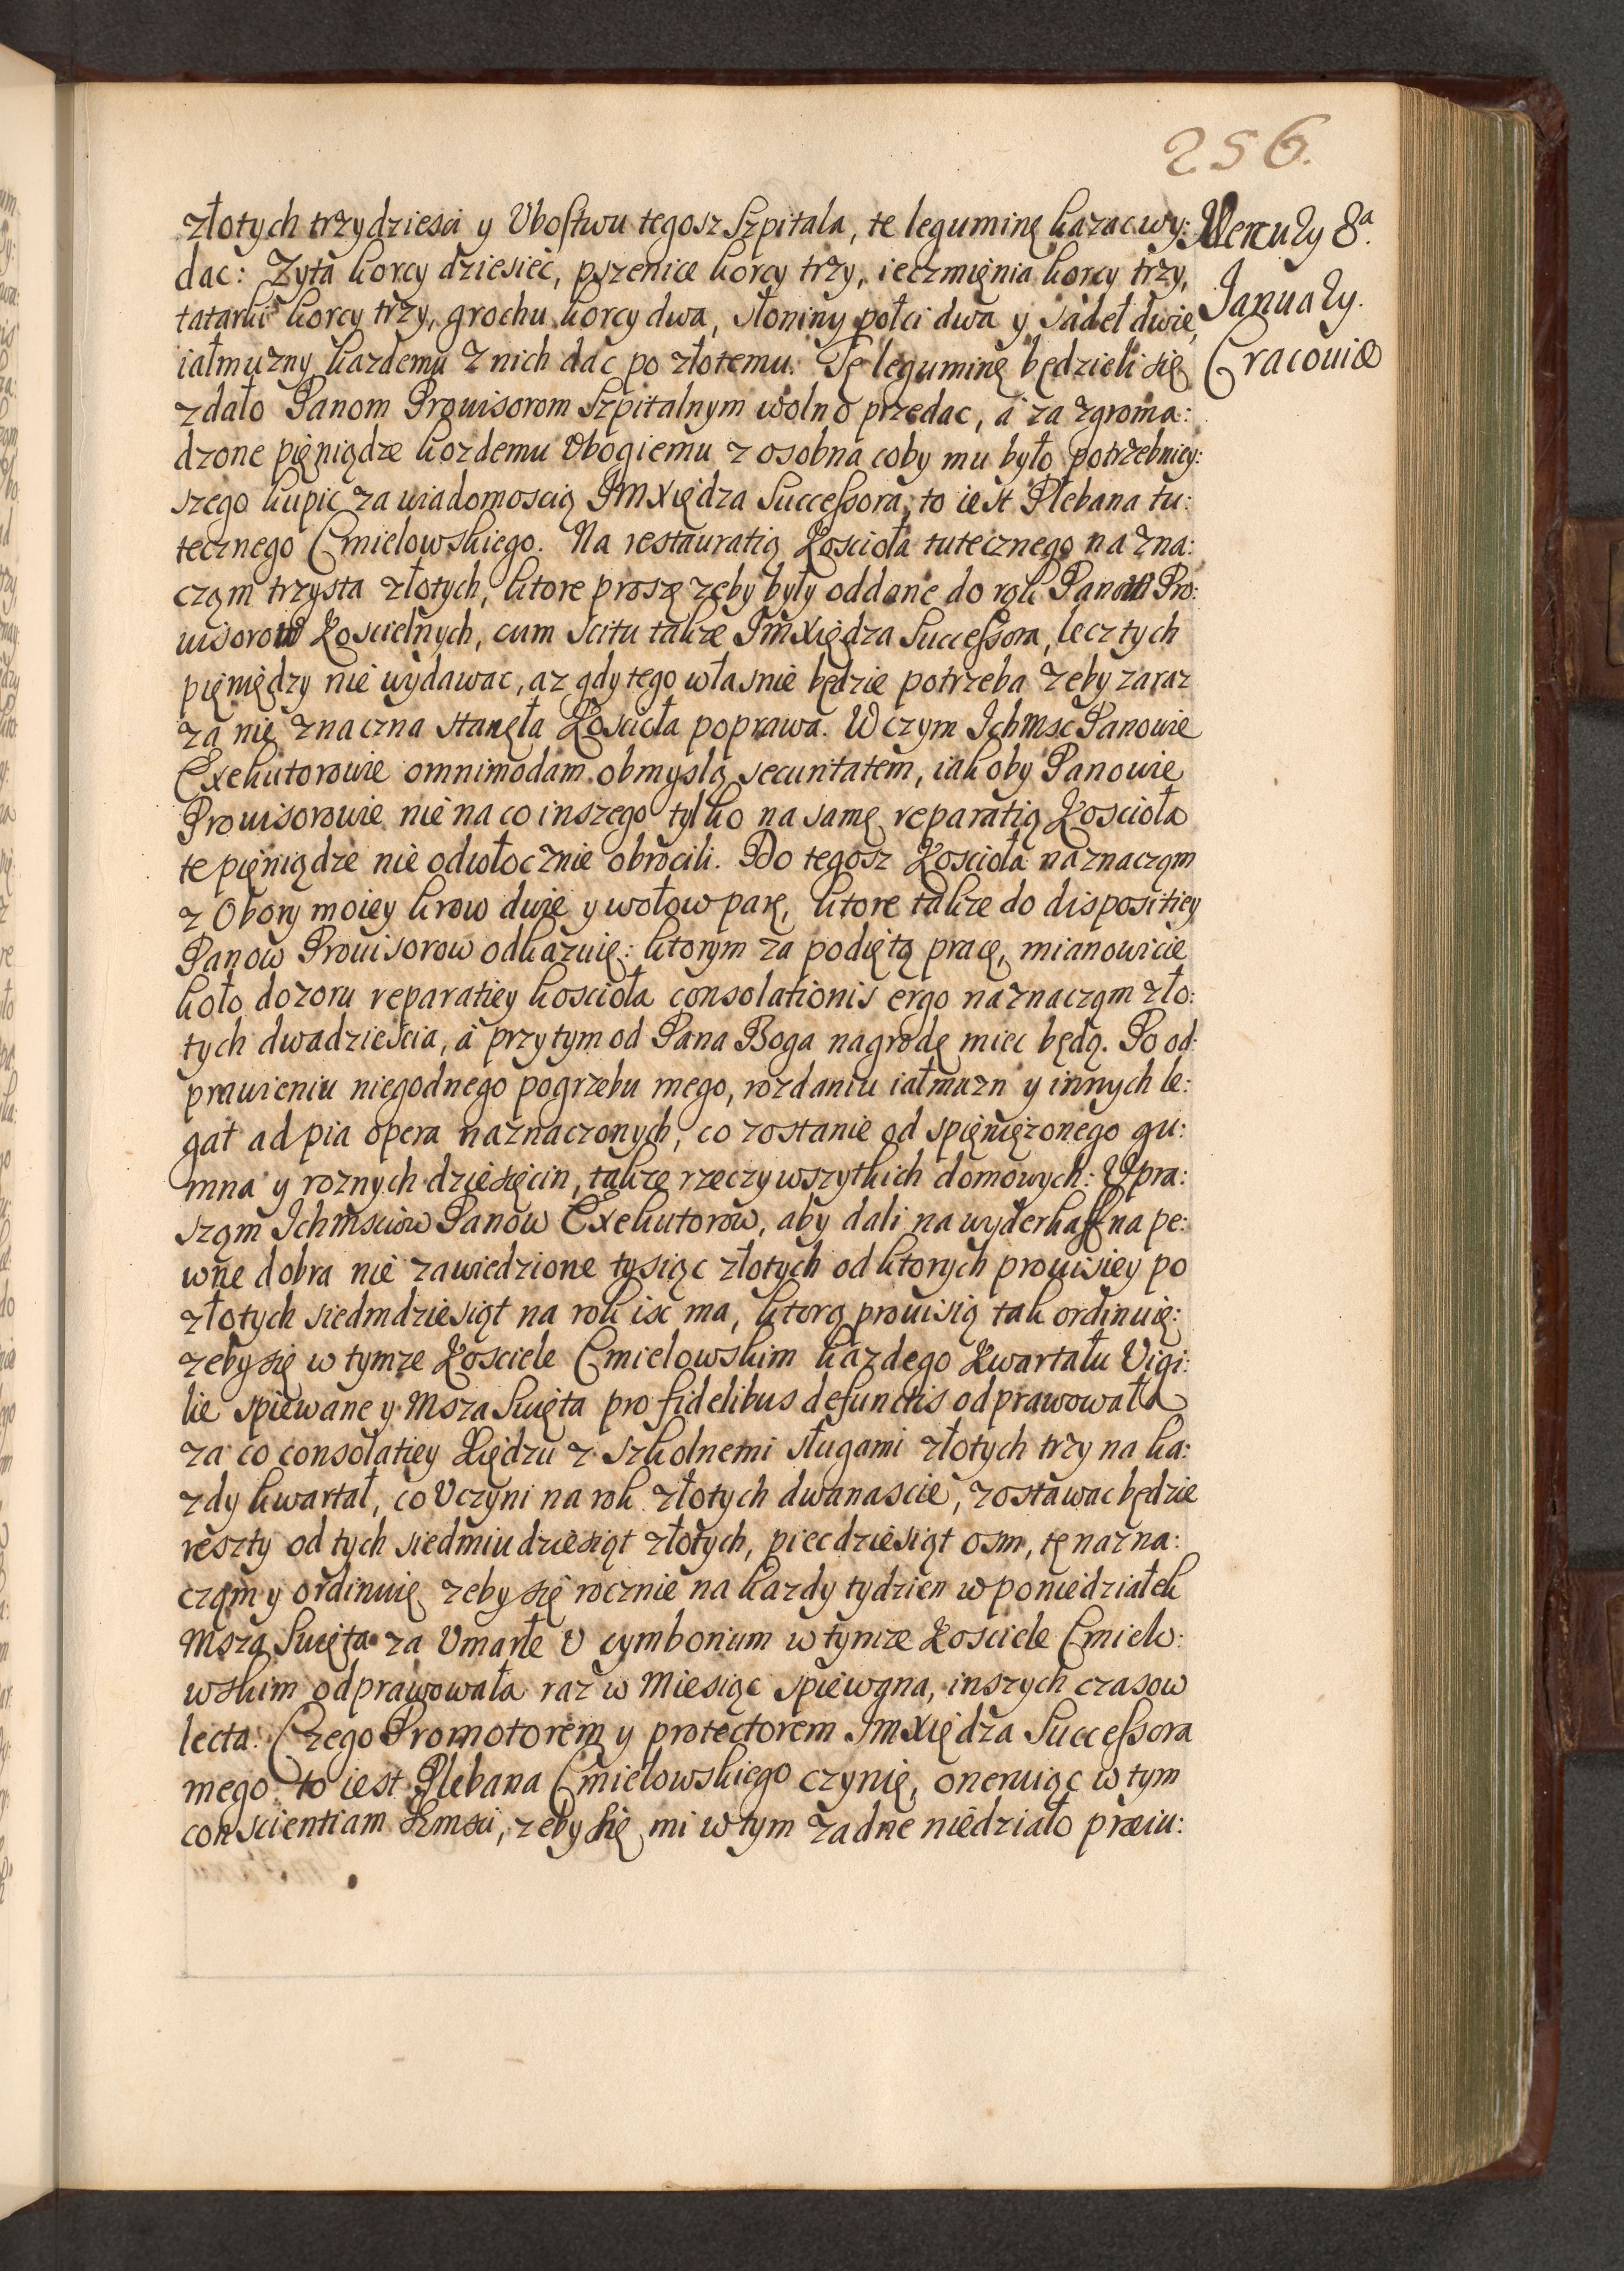 256.
złotych trzydziesci y Vbostwu tegosz Szpitala, te leguminę kazac wy:
dac: Zyta korcy dziesiec, pszenice korcy trzy, ieczmięnia korcy trzy,
tatarki korcy trzy, grochu korcy dwa, słoniny połci dwa y sadeł dwie,
iałmuzny kazdemu z nich dac po złotemu. Tę leguminę będzieli się
zdało Panom Prouisorom Szpitalnym wolno przedac, a za zgroma:
dzone pięniądze kozdemu Vbogiemu z osobna coby mu było potrzebniey:
szego kupic za wiadomoscią JmXiędza Successora, to iest Plebana tu:
tecznego Cmielowskiego. Na restauratią Kosciola tutecznego nazna:
cząm trzysta złotych, ktore proszę zeby były oddane do rąk Panow Pro:
uisorow Koscielnych, cum scitu takze JmXiędza Successora, lecz tych
pięniędzy nie wydawac, az gdy tego własnie będzie potrzeba zeby zaraz
za nie znaczna stanęła Koscioła poprawa. W czym Ichmsc Panowie
Exekutorowie omnimodam obmyslą securitatem, iakoby Panowie
Prouisorowie nie na co inszego tylko na samę reparatią Koscioła
te pięniądze nie odwłocznie obrocili. Do tegosz Koscioła naznacząm
z Obory moiey krow dwie y wołow parę, ktore takze do dispositiey
Panow Prouisorow odkazuię: ktorym za podiętą pracę, mianowicie
koło dozoru reparatiey koscioła consolationis ergo naznacząm zło:
tych dwadziescia, a przytym od Pana Boga nagrodę miec będą. Po od:
prawieniu niegodnego pogrzebu mego, rozdaniu iałmuzn y innych le:
gat ad pia opera naznaczonych, co zostanie od spięniężonego gu:
mna y roznych dziesięcin, takze rzeczy wszytkich domowych: Vpra:
sząm Ichmsciow Panow Exekutorow, aby dali na wyderkaff na pe:
wne dobra nie zawiedzione tysiąc złotych od ktorych prouisiey po
złotych siedmdziesiąt na rok isc ma, ktorą prouisią tak ordinuię:
zeby się w tymze Kosciele Cmielowskim kazdego Kwartału Vigi:
lie spiewane y Msza Swięta pro fidelibus defunctis odprawowała
za co consolatiey Xiędzu z szkolnemi sługami złotych trzy na ka:
zdy kwartał, co Vczyni na rok złotych dwanascie, zostawac będzie
reszty od tych siedmiudziesiąt złotych, piecdziesiąt osm, tę nazna:
cząm y ordinuię zeby się rocznie na kazdy tydzien w poniedziałek
Msza Swięta za Vmarłe V cymborium w tymze Kosciele Cmielo:
wskim odprawowała raz w Miesiąc spiewana, inszych czasow
lecta: Czego Promotorem y protectorem JmXiędza Successora
mego to iest Plebana Cmielowskiego czynię, oneruiąc w tym
conscientiam Jmsci, zeby się mi w tym zadne niedziało præiu:
Mercury 8ª.
Januarij.
Cracouiæ